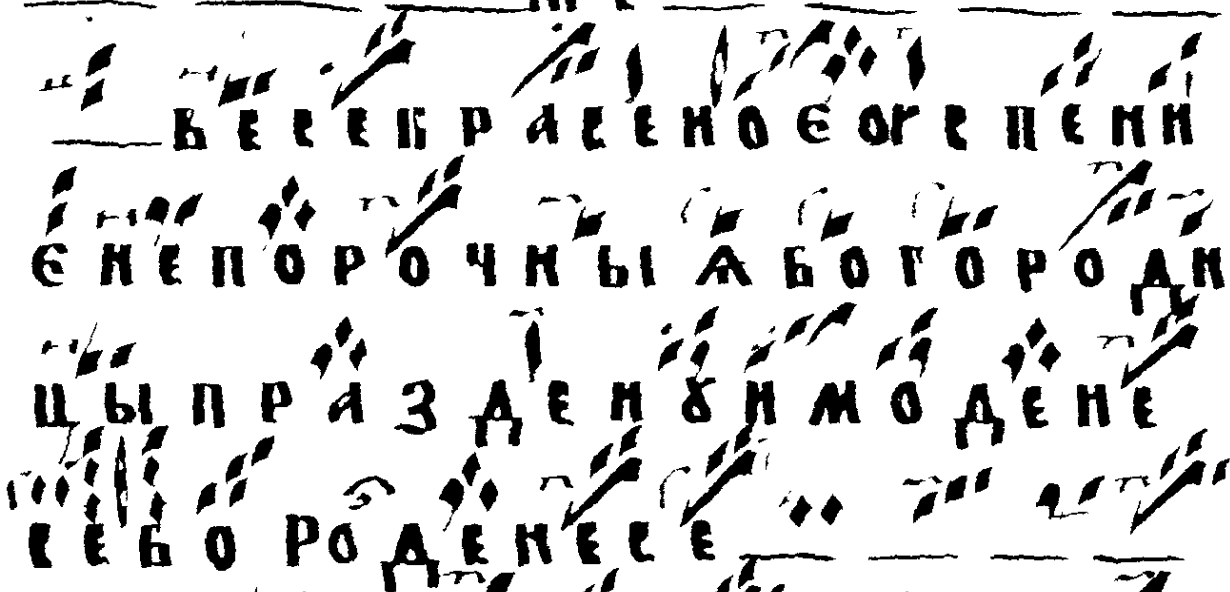 ВЕСЕКРАСЕНОЄОУСПЕНИ
ЄНЕПОРОЧНЫѦБОГОРОДИ
ЦЫПРАЗДЕНꙊИМОДЕНЕ
СЕБОРОДЕНЕСЕ